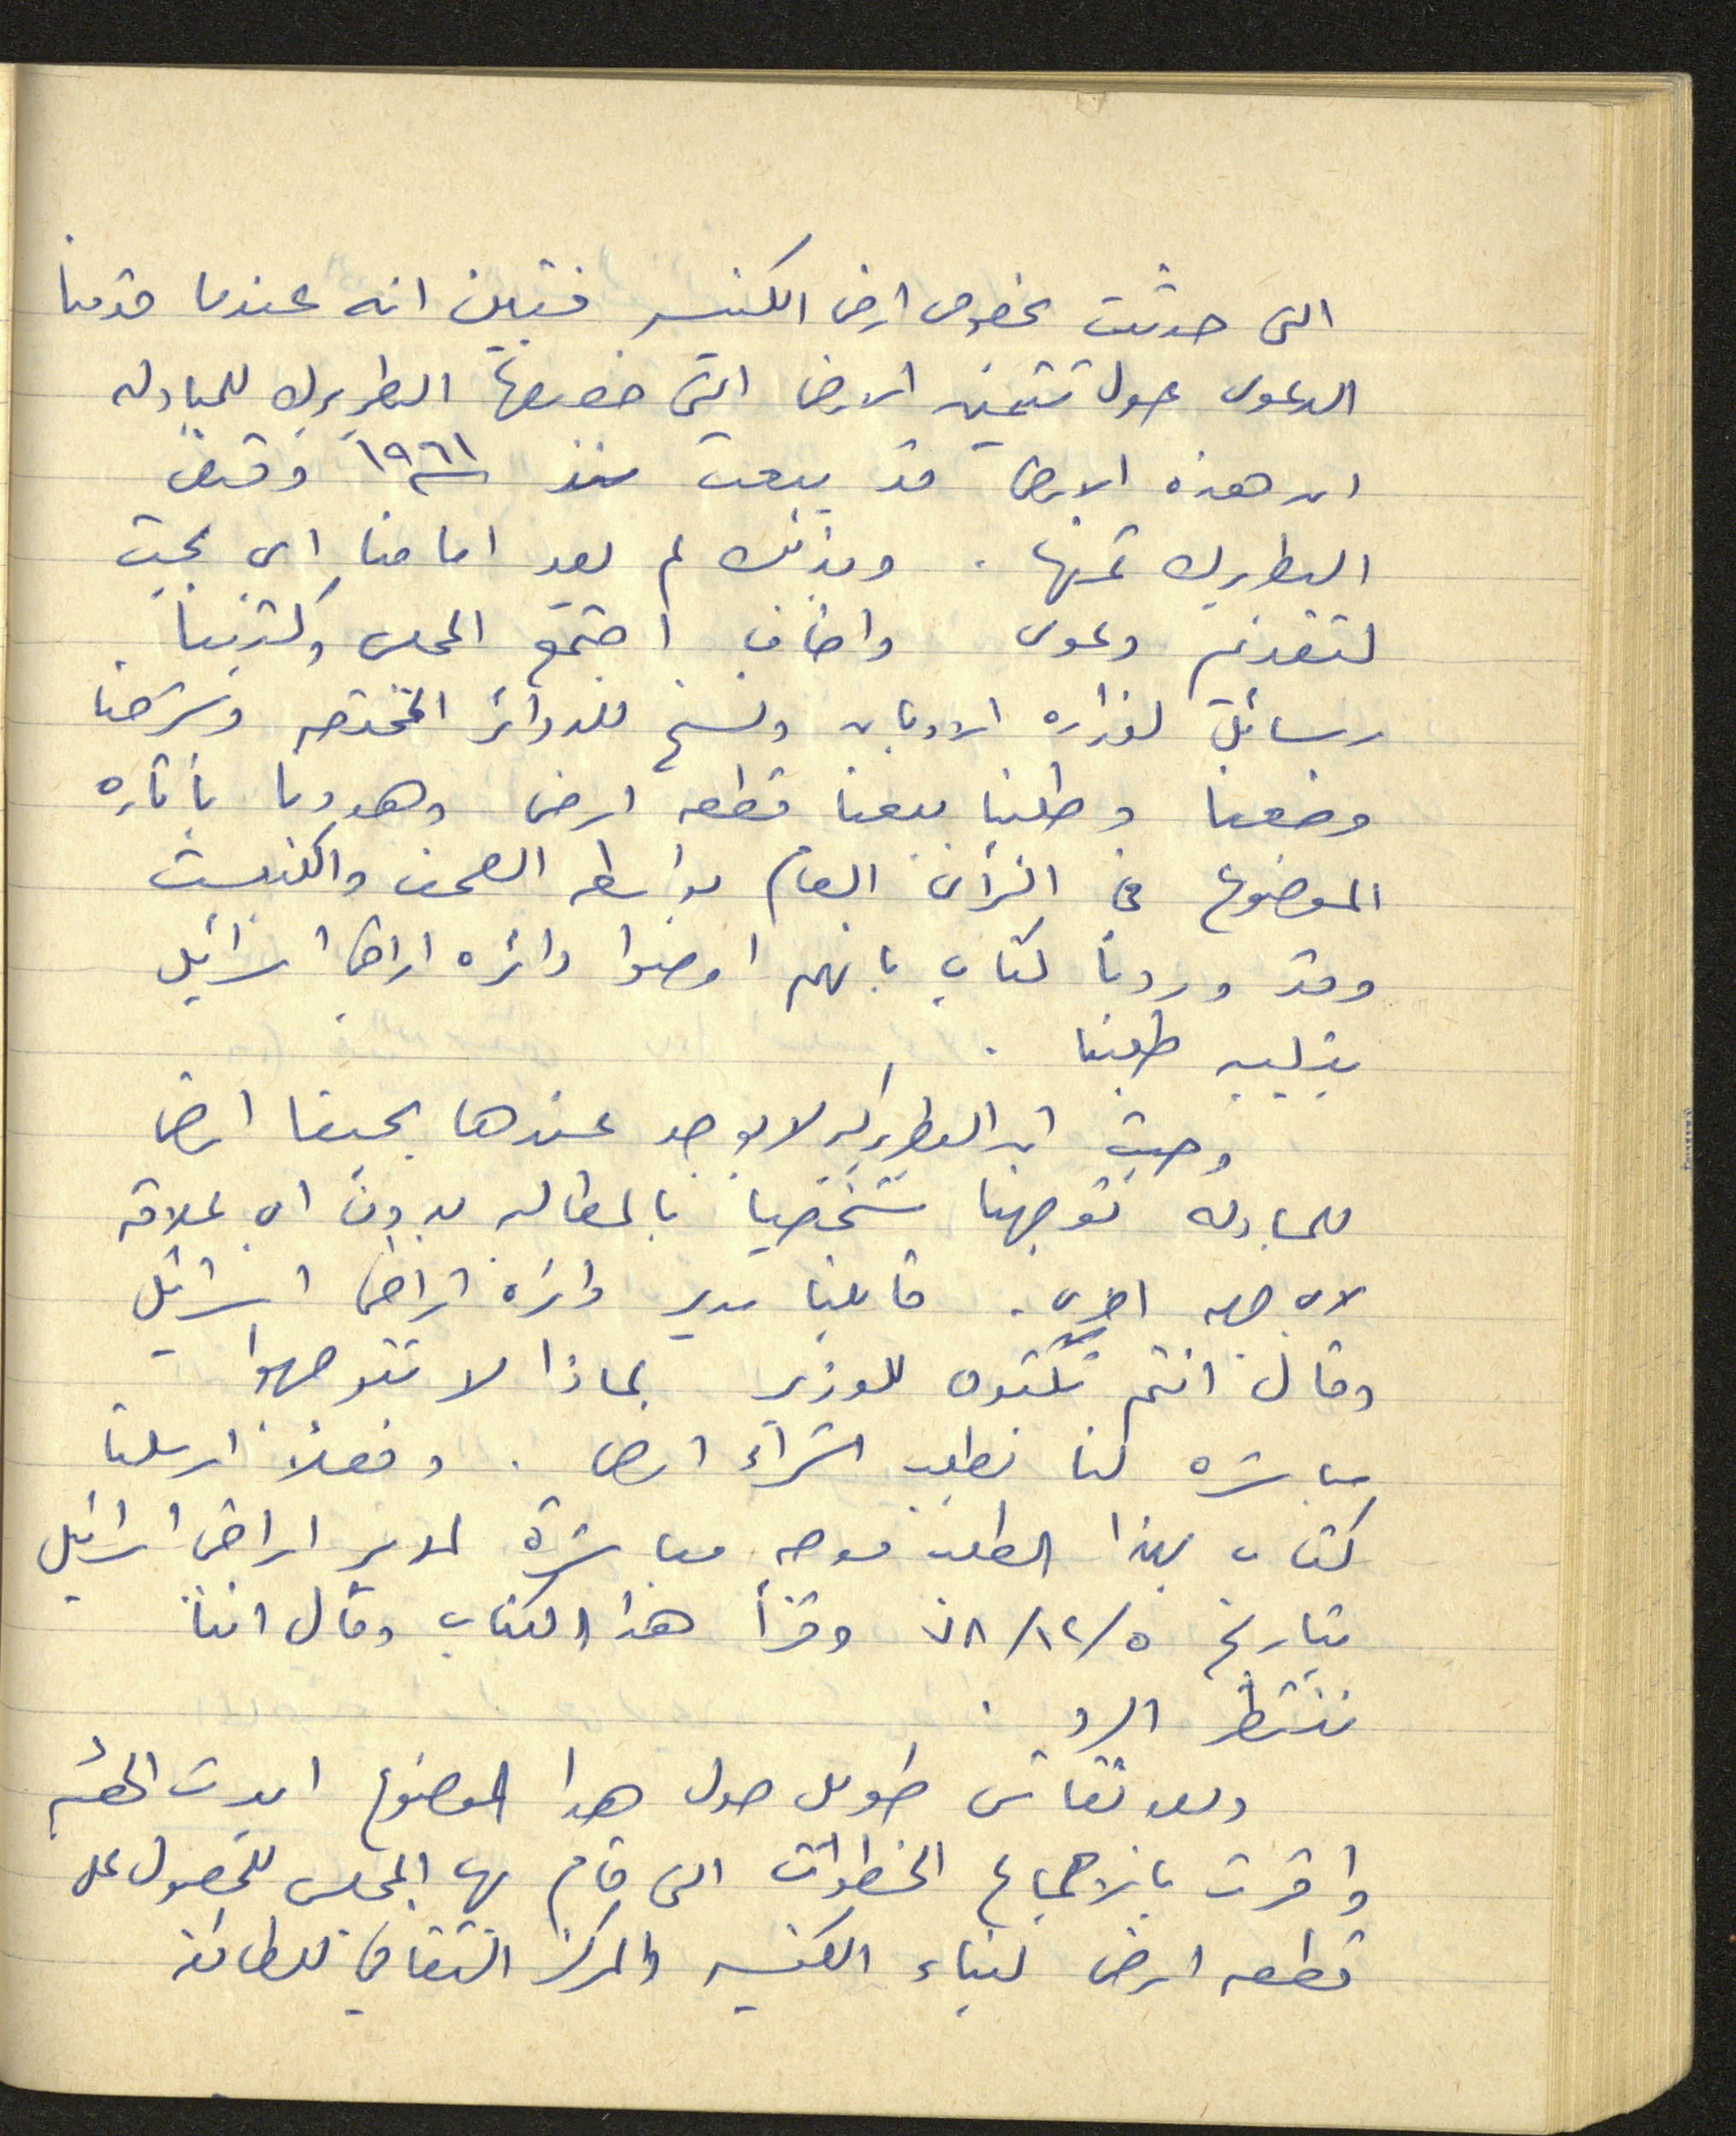 التي حدثت بخصوص ارض الكنيسه فتبين انه عندما قدمنا
الدعوى حول تثمين الارض التي خصصها البطريرك للمبادله
ان هذه الارض قد بيعت منذ سنة ١٩٦١ وقبض
البطريرك ثمنها . وبذلك لم يعد امامنا اي
لتقديم دعوى واضاف اجتمع المجلس وكتبنا
رسائل لوزاره الاديان ونسخ للدوائر المختصه وشرحنا
وضعنا وطلبنا بيعنا قطعه ارض وهددنا باثاره
الموضوع في الرأي العام بواسطه الصحف والكنيست
وقد وردنا كتاب بانهم اوصوا دائره اراضي اسرائيل
بتلبيه طلبنا .
وحيث ان البطريركيه لا يوجد عندها بحيفا ارض
للمبادله توجهنا شخصيا بالمطالبه بدون اي علاقه
لاي جهه اخرى . قابلنا مدير دائرة اراضي اسرائيل
وقال انتم تكتبون للوزير لماذا لا تتوجهوا
مباشره لنا بطلب شراء ارض . وفعلاً ارسلنا
كتاب بهذا الطلب موجه مباشرة لمدير اراضي اسرائيل
بتاريخ ٥/١٢/٧٨ وقرأ هذا الكتاب وقال اننا
ننتظر الرد .
وبعد نقاش طويل حول هذا الموضوع ايدت الهيئه
واقرت بالاجماع الخطوات التي قام بها المجلس للحصول على
قطعه ارض لبناء الكنيسه والمركز الثقافي للطائفه